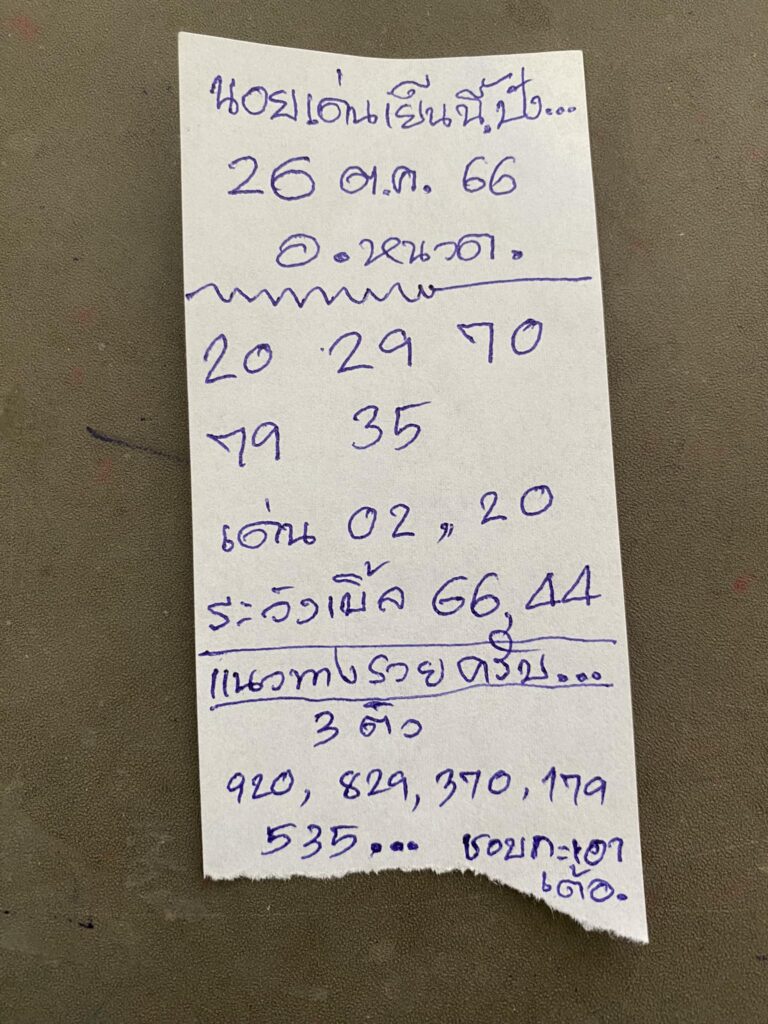 นอยเด่นเย็นนี้ ปัง...
26 ต.ค. 66
อ.หนวด.
20 29 70
79 35
เด่น 02 ,, 20
ระวังเบิ้ล 66, 44
แนวทางรวยครับ...
3 ตัว
920, 829, 370, 179
535... ชอบกะเอา
เด้อ.